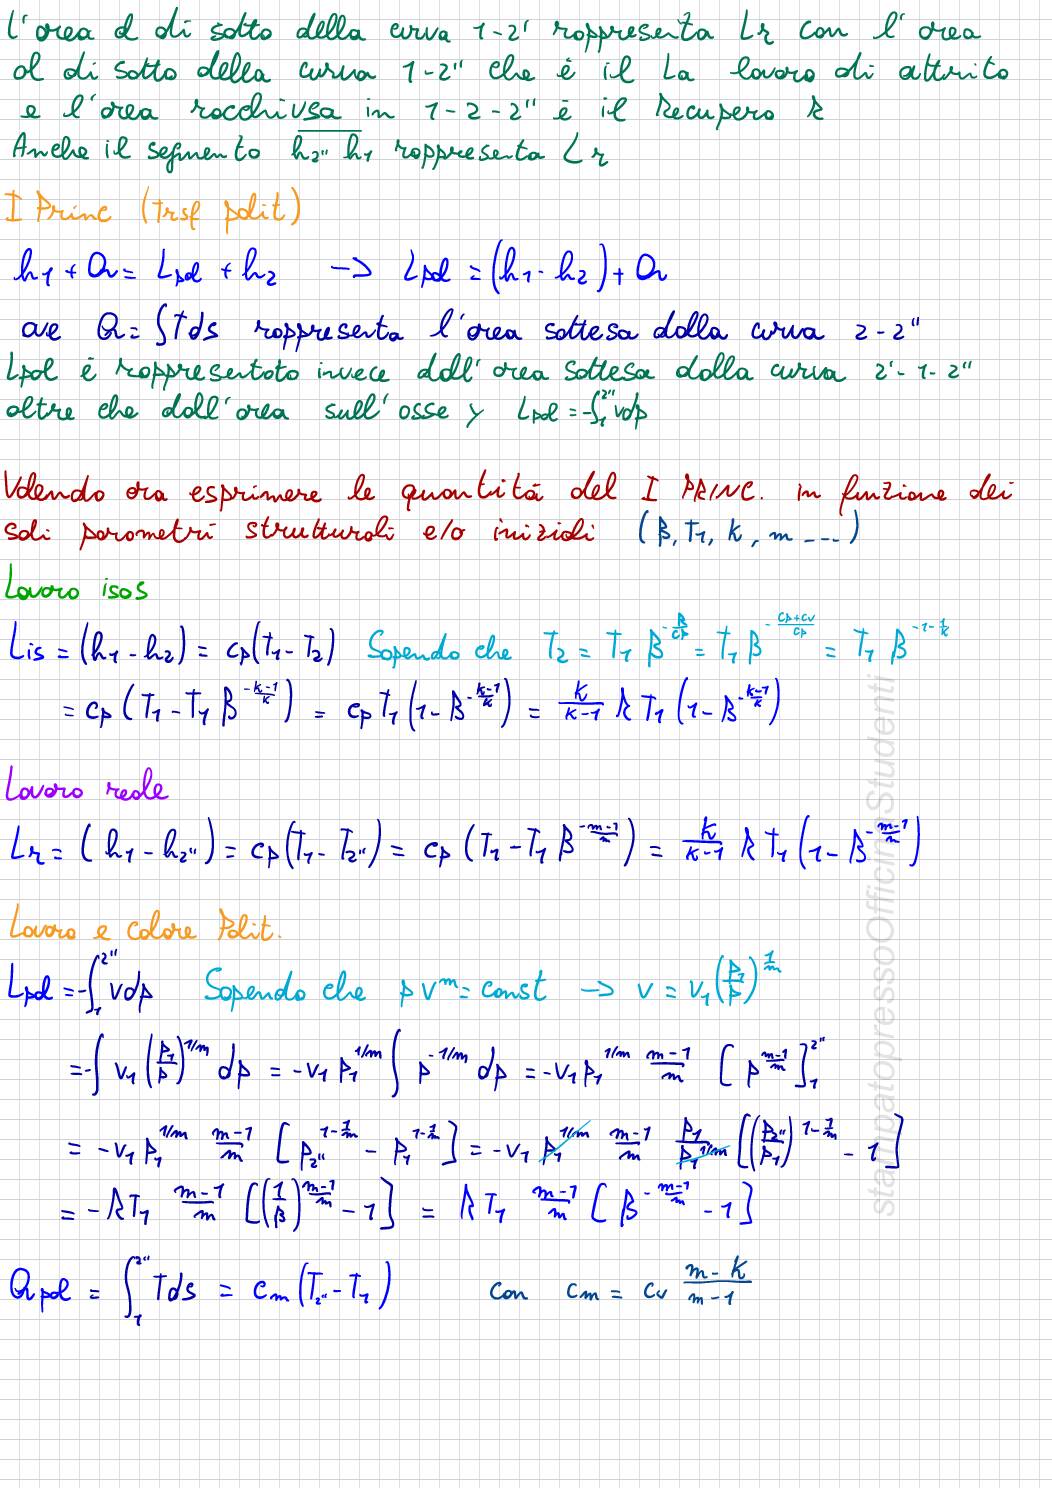 L'area al di sotto della curva 1-2' rappresenta Lr con l'area
al di sotto della curva 1-2" che è il La lavoro di attrito
e l'area racchiusa in 1-2-2" è il Recupero R
Anche il segmento h2" h1 rappresenta Lr
I Princ (trsf polit)
h1 + Q = Lpol + h2 -> Lpol = (h1 - h2) + Q
ove Q = ∫Tds rappresenta l'area sottesa dalla curva 2-2"
Lpol è rappresentato invece dall'area sottesa dalla curva 2'-1-2"
oltre che dall'area sull'asse y Lpol = -∫₁^2" vdp
Volendo ora esprimere le quantità del I PRINC. in funzione dei
soli parametri strutturali e/o iniziali (β, T1, k, m ....)
Lavoro isos
Lis = (h1 - h2) = cp(T1 - T2) Sapendo che T2 = T1 β^(-R/cp) = T1 β^(-(cp+cv)/cp) = T1 β^(-1-1/k)
= cp (T1 - T1 β^(-(k-1)/k)) = cp T1 (1 - β^(-(k-1)/k)) = k/(k-1) R T1 (1 - β^(-(k-1)/k))
Lavoro reale
Lr = (h1 - h2") = cp(T1 - T2") = cp (T1 - T1 β^(-(m-1)/m)) = k/(k-1) R T1 (1 - β^(-(m-1)/m))
Lavoro e calore Polit.
Lpol = -∫₁^2" vdp Sapendo che p v^m = const -> v = v1 (p1/p)^(1/m)
= -∫ v1 (p1/p)^(1/m) dp = -v1 p1^(1/m) ∫ p^(-1/m) dp = -v1 p1^(1/m) (m-1)/m [p^((m-1)/m)]₁^2"
= -v1 p1^(1/m) (m-1)/m [p2"^(1-1/m) - p1^(1-1/m)] = -v1 p1^(1/m) (m-1)/m p1/p1^(1/m) [(p2"/p1)^(1-1/m) - 1]
= -RT1 (m-1)/m [(1/β)^((m-1)/m) - 1] = RT1 (m-1)/m [β^(-(m-1)/m) - 1]
Qpol = ∫₁^2" Tds = cm (T2" - T1) con cm = cv (m-k)/(m-1)
stampatopressoOfficinaStudenti